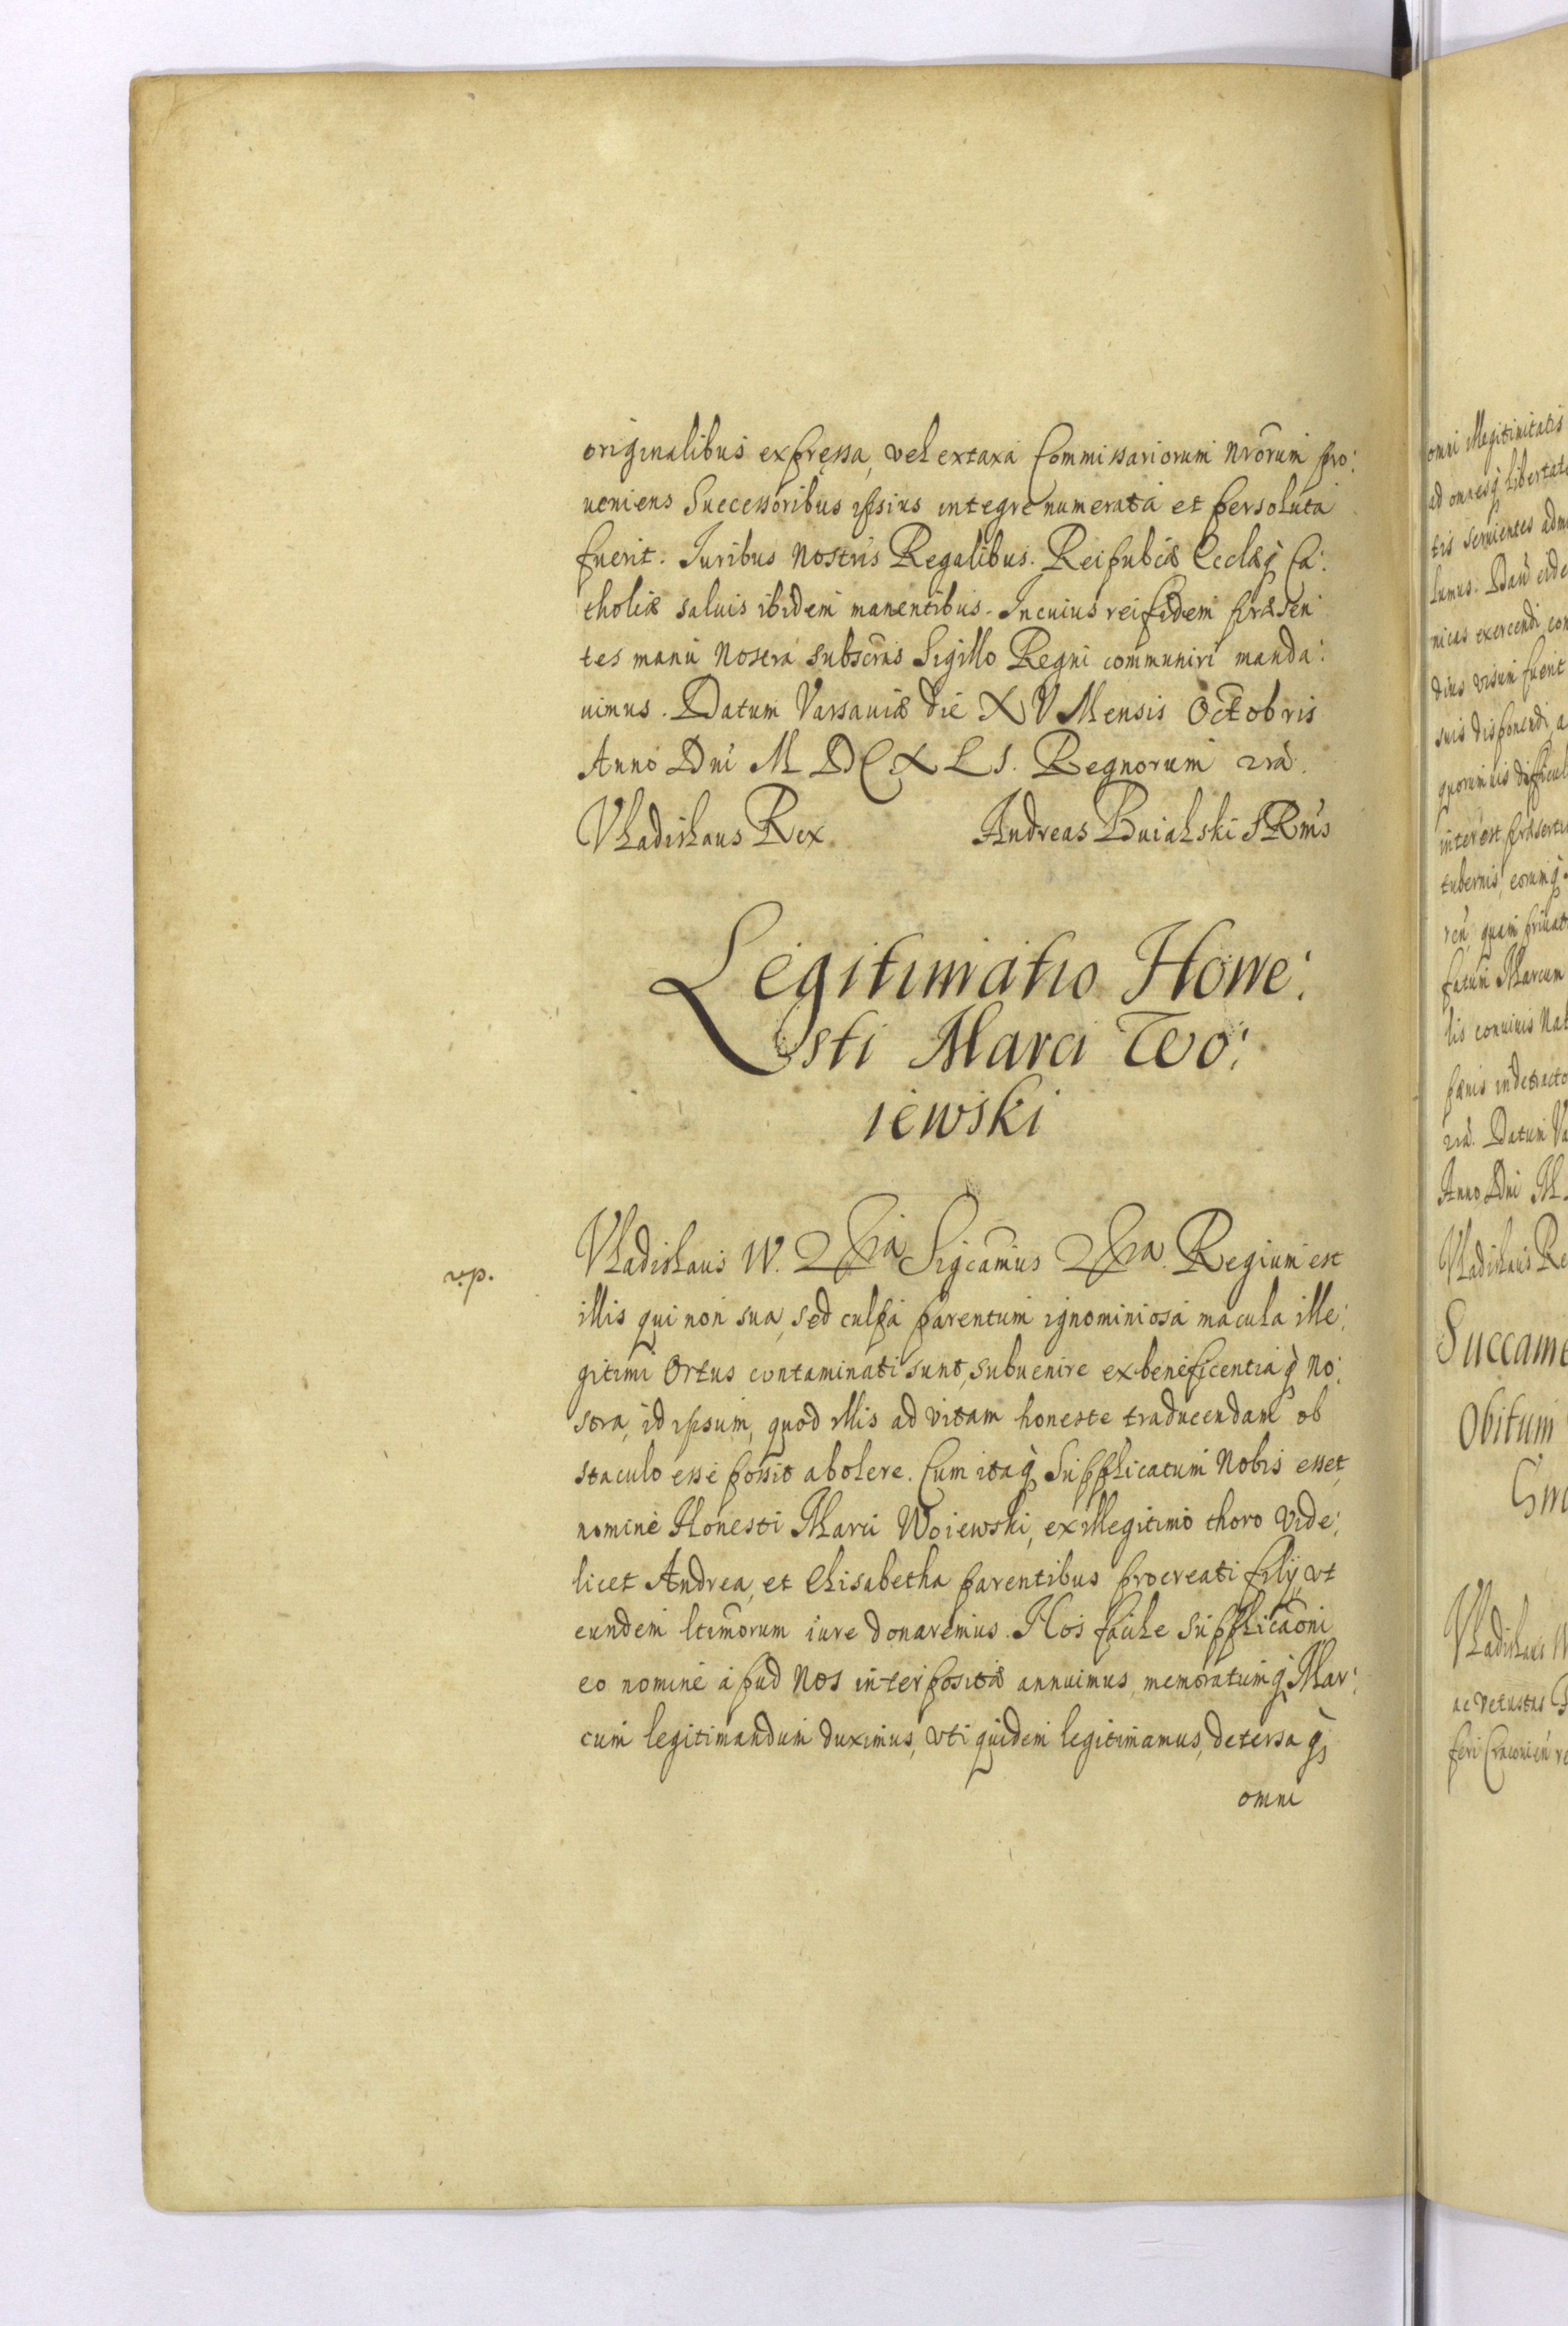 originalibus expressa, vel ex taxa Commissariorum nrorum pro:
ueniens Successoribus ipsius integre numerata et persoluta
fuerit. Juribus nostris Regalibus. Reipubcæ Ecclæq Ca:
tholicæ saluis ibidem manentibus. In cuius rei fidem præsen
tes manu nostra subscras Sigillo Regni communiri manda:
uimus. Datum Varsauiæ die XV Mensis Octobris
Anno Dni MDCXLI. Regnorum 2ra.
Vladislaus Rex. Andreas Buialski SRMs
Legitimatio Hone:
sti Marci Wo:
iewski
Vladislaus IV. &a Sigcamus &a. Regium est
r.p.
illis qui non sua, sed culpa parentum ignominiosa macula ille:
gitimi Ortus contaminati sunt, subuenire ex beneficentiaq no:
stra, id ipsum, quod illis ad vitam honeste traducendam ob
staculo esse possit abolere. Cum itaq Supplicatum Nobis esset,
nomine Honesti Marci Woiewski, ex illegitimo thoro vide:
licet Andrea, et Elisabetha parentibus procreati filij, vt
eundem ltimorum iure donaremus. Nos facile supplicaoni
eo nomine apud Nos interpositæ annuimus, memoratumq Mar:
cum legitimandum duximus, vti quidem legitimamus, detersaq,
omni
omni illegitimitatis
ad omnesq libertat
tis seruientes adm
lumus. Dan eide
nicas exercendi con
dius visum fuerit
suis disponendi, a
quorumuis difficul
interest præserti
tubernis, eorumq
ren, quam priuat
fatum Marcum
lis conuiuis nat
pænis in detracto
2ra. Datum Va
Anno Dni M
Vladislaus Re
Succame
Obitum
Vladislaus
ac vetustas
feri Cracouien re